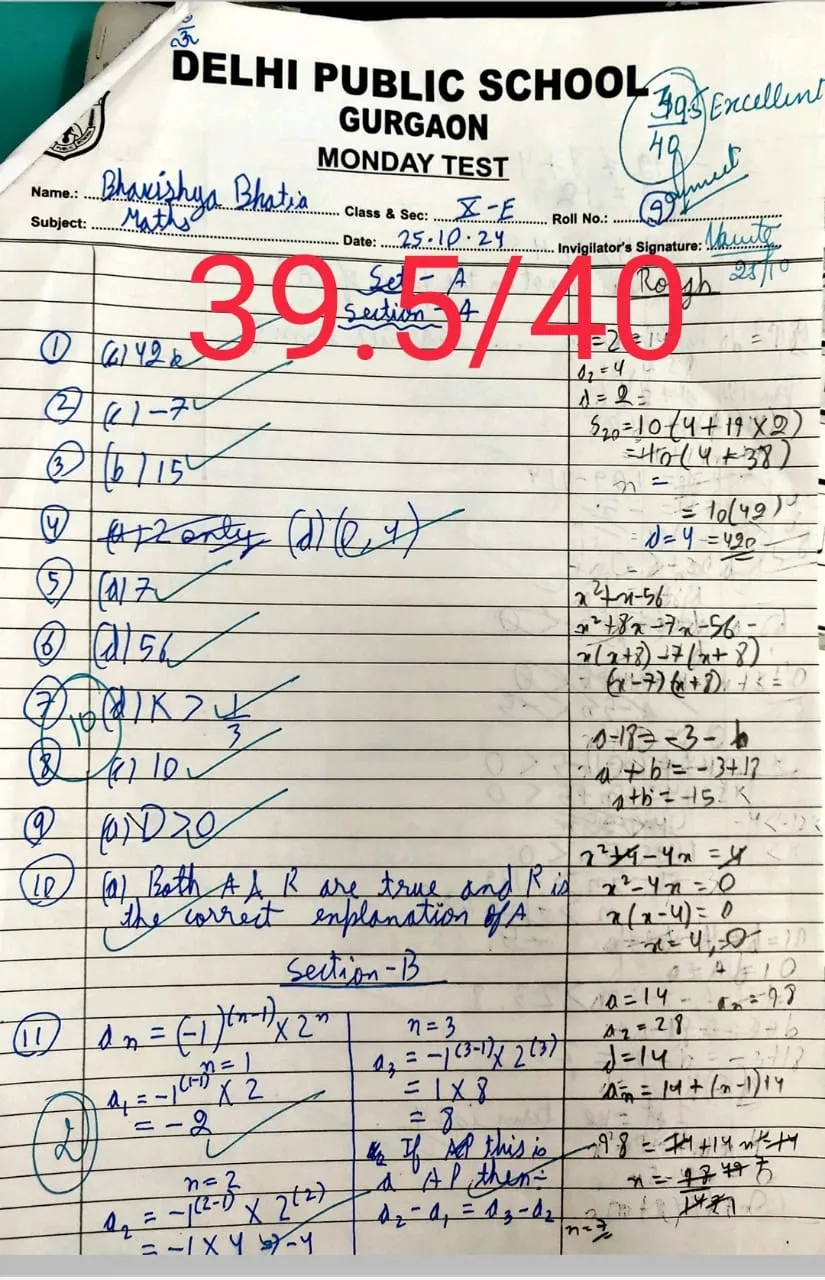 DELHI PUBLIC SCHOOL
GURGAON
MONDAY TEST
39.5
40
Excellent
Name.: Bhavishya Bhatia
Class & Sec: X-E
Roll No.: 9
Subject: Maths
Date: 25.10.24
Invigilator's Signature:
25/10
39.5/40
Set - A
Section - A
Rough
① (c) 42
② (c) -7
③ (b) 15
④ (a) 2 only (d) (0, 4)
⑤ (a) 7
⑥ (d) 56
⑦ (d) K > 1/3
⑧ (c) 10
10
⑨ (a) D > 0
⑩ (a) Both A & R are true and R is
the correct explanation of A
Section-B
⑪ an = (-1)^(n-1) × 2^n
n = 1
a1 = -1^(1-1) × 2
= -2
2
n = 2
a2 = -1^(2-1) × 2^(2)
= -1 × 4 = -4
n = 3
a3 = -1^(3-1) × 2^(3)
= 1 × 8
= 8
If this is
a AP then:-
a2 - a1 = a3 - a2
a2 = 4
d = 2
S20 = 10(4 + 19 × 2)
= 10(4 + 38)
n =
= 10(42)
d = 4 = 420
x² + x - 56
x² + 8x - 7x - 56
x(x + 8) - 7(x + 8)
(x - 7)(x + 8)
a + b = -13 + 
a + b = -15
x² + 4 - 4x = 4
x² - 4x = 0
x(x - 4) = 0
x = 4, 0
a = 14 an = 98
a2 = 28
d = 14
an = 14 + (n-1)14
98 = 14 + 14n - 14
n =
n = 7